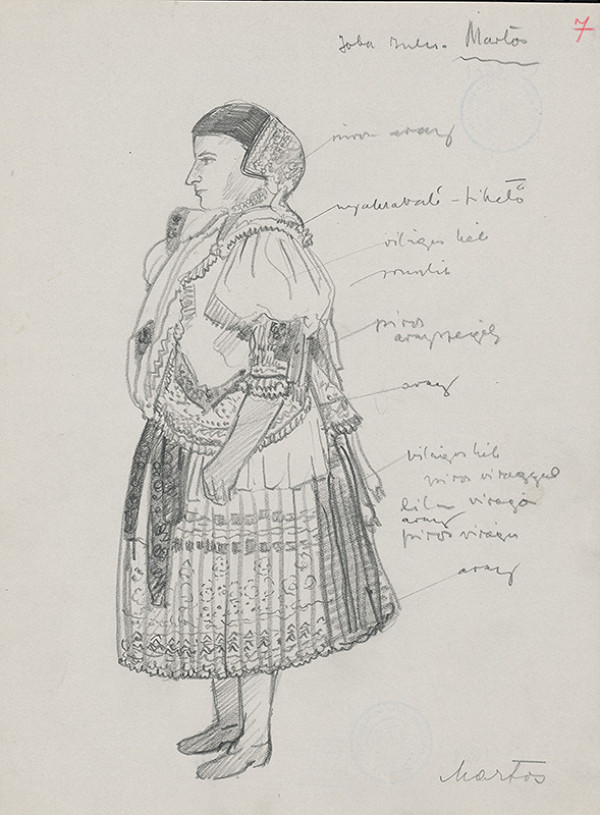 Martos
7
piros arany
nyakravaló - lihető
világos kék
piros
aranyszegély
arany
világos kék
piros virággal
lila virágo
arany
piros virágu
arany
Martos